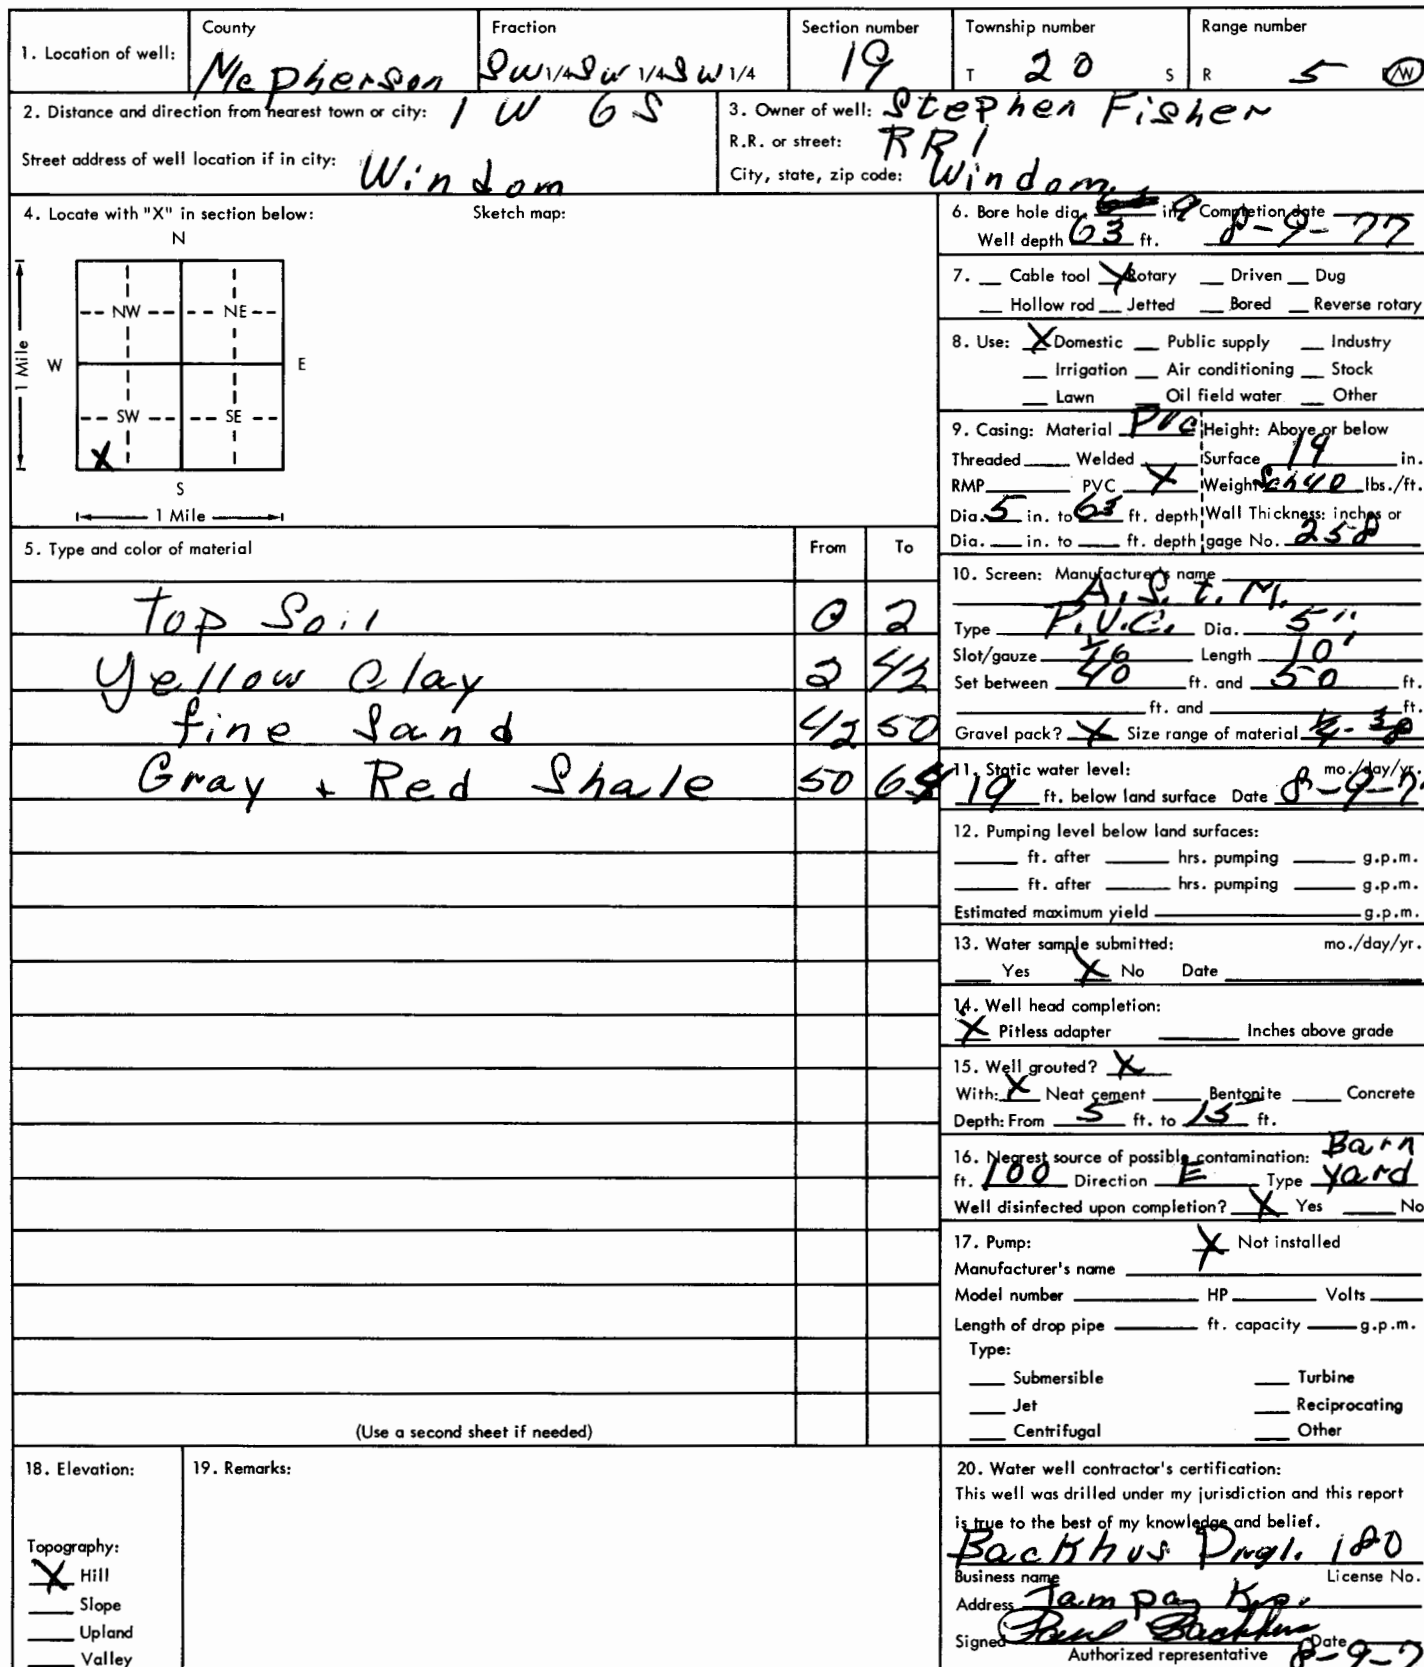 1. Location of well: County McPherson Fraction SW 1/4 SW 1/4 SW 1/4 Section number 19 Township number T 20 S Range number R 5 E/W
2. Distance and direction from nearest town or city: 1 W 6 S
Street address of well location if in city: Windom
3. Owner of well: Stephen Fisher
R.R. or street: RR1
City, state, zip code: Windom
4. Locate with "X" in section below: Sketch map:
N
NW NE
W E
1 Mile
SW SE
X
S
1 Mile
5. Type and color of material From To
Top Soil 0 2
Yellow Clay 2 42
fine Sand 42 50
Gray + Red Shale 50
(Use a second sheet if needed)
6. Bore hole dia. in. 9 Completion date
Well depth 63 ft. 8-9-77
7. Cable tool X Rotary Driven Dug
Hollow rod Jetted Bored Reverse rotary
8. Use: X Domestic Public supply Industry
Irrigation Air conditioning Stock
Lawn Oil field water Other
9. Casing: Material PVC Height: Above or below
Threaded Welded Surface 19 in.
RMP PVC X Weight Sch 40 lbs./ft.
Dia. 5 in. to 63 ft. depth Wall Thickness: inches or
Dia. in. to ft. depth gage No. 258
10. Screen: Manufacturer's name
A.S.t.M.
Type P.V.C. Dia. 5"
Slot/gauze Length 10'
Set between 40 ft. and 50 ft.
ft. and ft.
Gravel pack? X Size range of material
11. Static water level: mo./day/yr.
19 ft. below land surface Date 8-9-7
12. Pumping level below land surfaces:
ft. after hrs. pumping g.p.m.
ft. after hrs. pumping g.p.m.
Estimated maximum yield g.p.m.
13. Water sample submitted: mo./day/yr.
Yes X No Date
14. Well head completion:
X Pitless adapter Inches above grade
15. Well grouted? X
With: X Neat cement Bentonite Concrete
Depth: From 5 ft. to 15 ft.
16. Nearest source of possible contamination: Barn
ft. 100 Direction E Type Yard
Well disinfected upon completion? X Yes No
17. Pump: X Not installed
Manufacturer's name
Model number HP Volts
Length of drop pipe ft. capacity g.p.m.
Type:
Submersible Turbine
Jet Reciprocating
Centrifugal Other
18. Elevation:
Topography:
X Hill
Slope
Upland
Valley
19. Remarks:
20. Water well contractor's certification:
This well was drilled under my jurisdiction and this report
is true to the best of my knowledge and belief.
Backhus Drgl. 180
Business name License No.
Address Tampa, Ks.
Signed Paul Backhus Date 8-9-7
Authorized representative